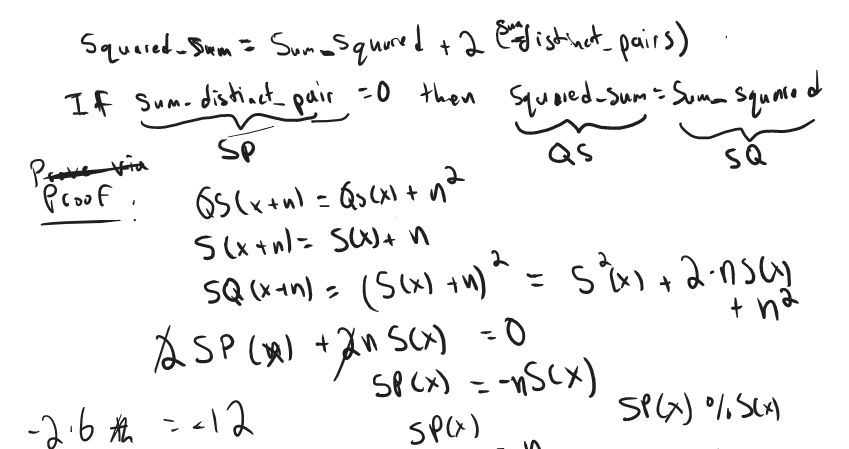 Squared_sum = Sum_squared + 2 (sum distinct_pairs)
If sum_distinct_pair = 0 then squared_sum = Sum_squared
SP QS SQ
Prove via
Proof :
QS(x+n) = QS(x) + n²
S(x+n) = S(x) + n
SQ(x+n) = (S(x) + n)² = S²(x) + 2·nS(x)
+ n²
2SP(x) + 2nS(x) = 0
SP(x) = -nS(x)
SP(x) % S(x)
-2·6 = -12
SP(x)
= n